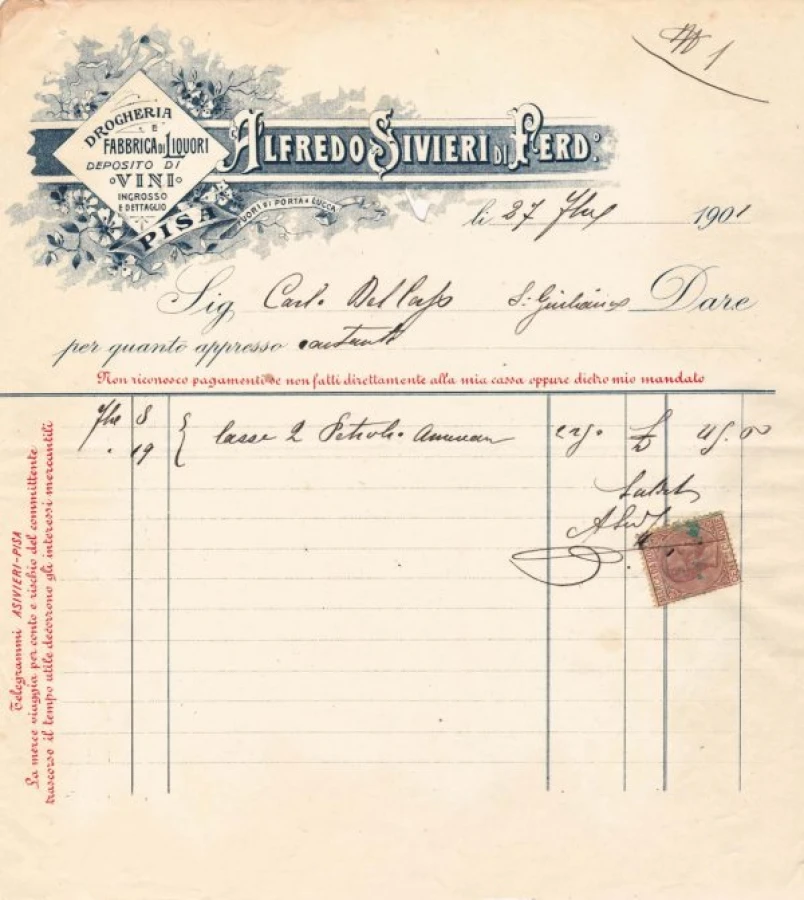 N 1
DROGHERIA
E
FABBRICA DI LIQUORI
DEPOSITO DI
VINI
INGROSSO
E DETTAGLIO
PISA
FUORI DI PORTA A LUCCA
ALFREDO SIVIERI DI FERD.º
li 27 7bre 1901
Sig Carlo S. Giuliano Dare
per quanto appresso contanti
Non riconosco pagamenti se non fatti direttamente alla mia cassa oppure dietro mio mandato
7bre 8
" 19
Casse 2 Petrolio £ 45.00
Telegrammi ASIVIERI-PISA
La merce viaggia per conto e rischio del committente
trascorso il tempo utile decorrono gli interessi mercantili